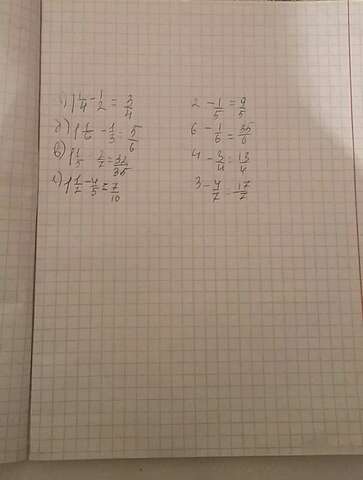 а) 1 1/4 - 1/2 = 3/4
б) 1 1/6 - 1/3 = 5/6
в) 1 1/5 - 2/7 = 32/35
г) 1 1/2 - 4/5 = 7/10
2 - 1/5 = 9/5
6 - 1/6 = 35/6
4 - 3/4 = 13/4
3 - 4/7 = 17/7